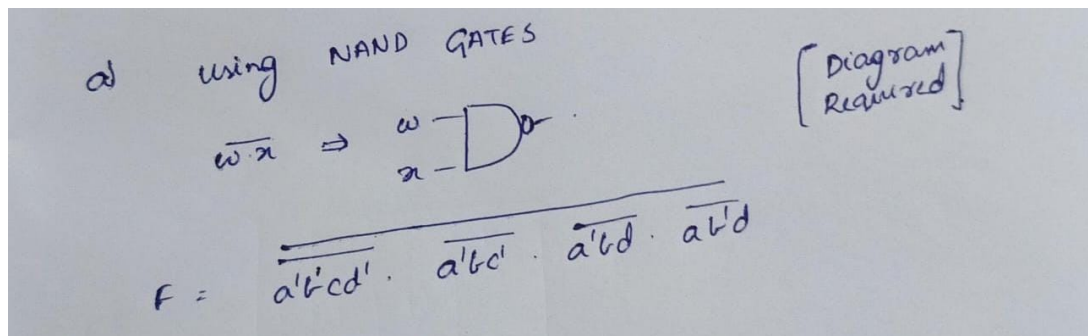 a) using NAND GATES
[Diagram
Required]
w.x ⇒ w
x
F = a'b'cd' . a'bc' . a'bd . ab'd